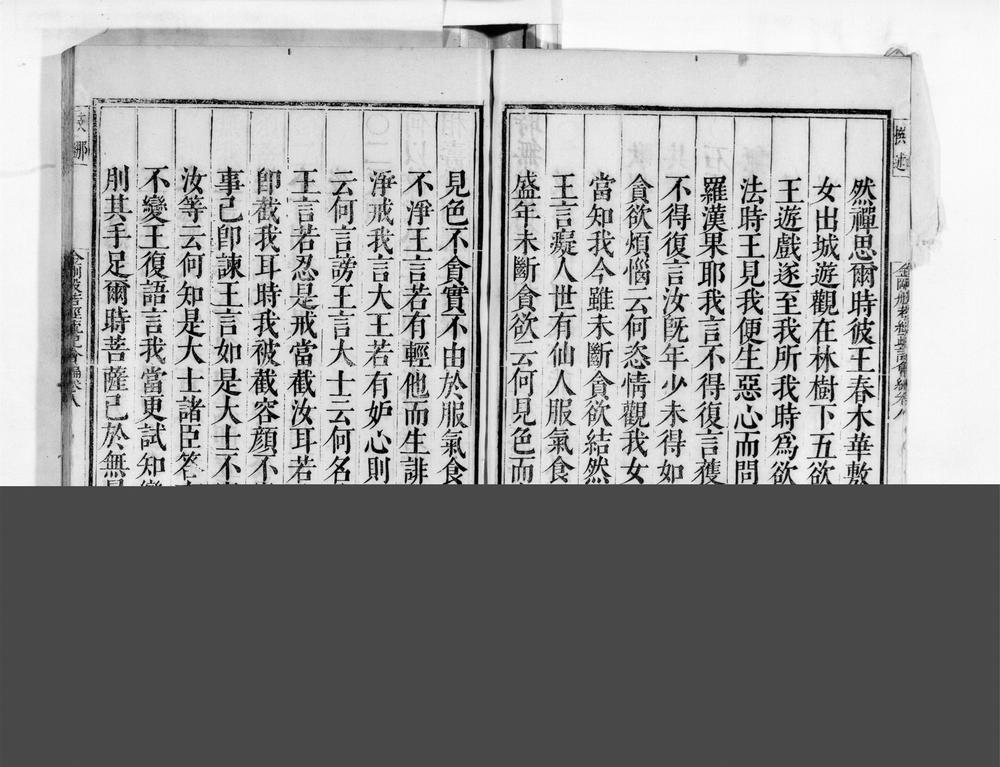 然禪思爾時彼王春木華敷
女出城遊觀在林樹下五欲
王遊戲逐至我所我時為欲
法時王見我便生惡心而問
羅漢果耶我言不得復言獲
不得復言汝既年少未得如
貪欲煩惱云何恣情觀我女
當知我今雖未斷貪欲結然
王言癡人世有仙人服氣食
盛年未斷貪欲云何見色而
見色不貪實不由於服氣食
不淨王言若有輕他而生誹
淨戒我言大王若有妒心則
云何言謗王言大士云何名
王言若忍是戒當截汝耳若
卽截我耳時我被截容顏不
事已卽諫王言如是大士不
汝等云何知是大士諸臣答
不變王復語言我當更試知
刖其手足爾時菩薩已於無